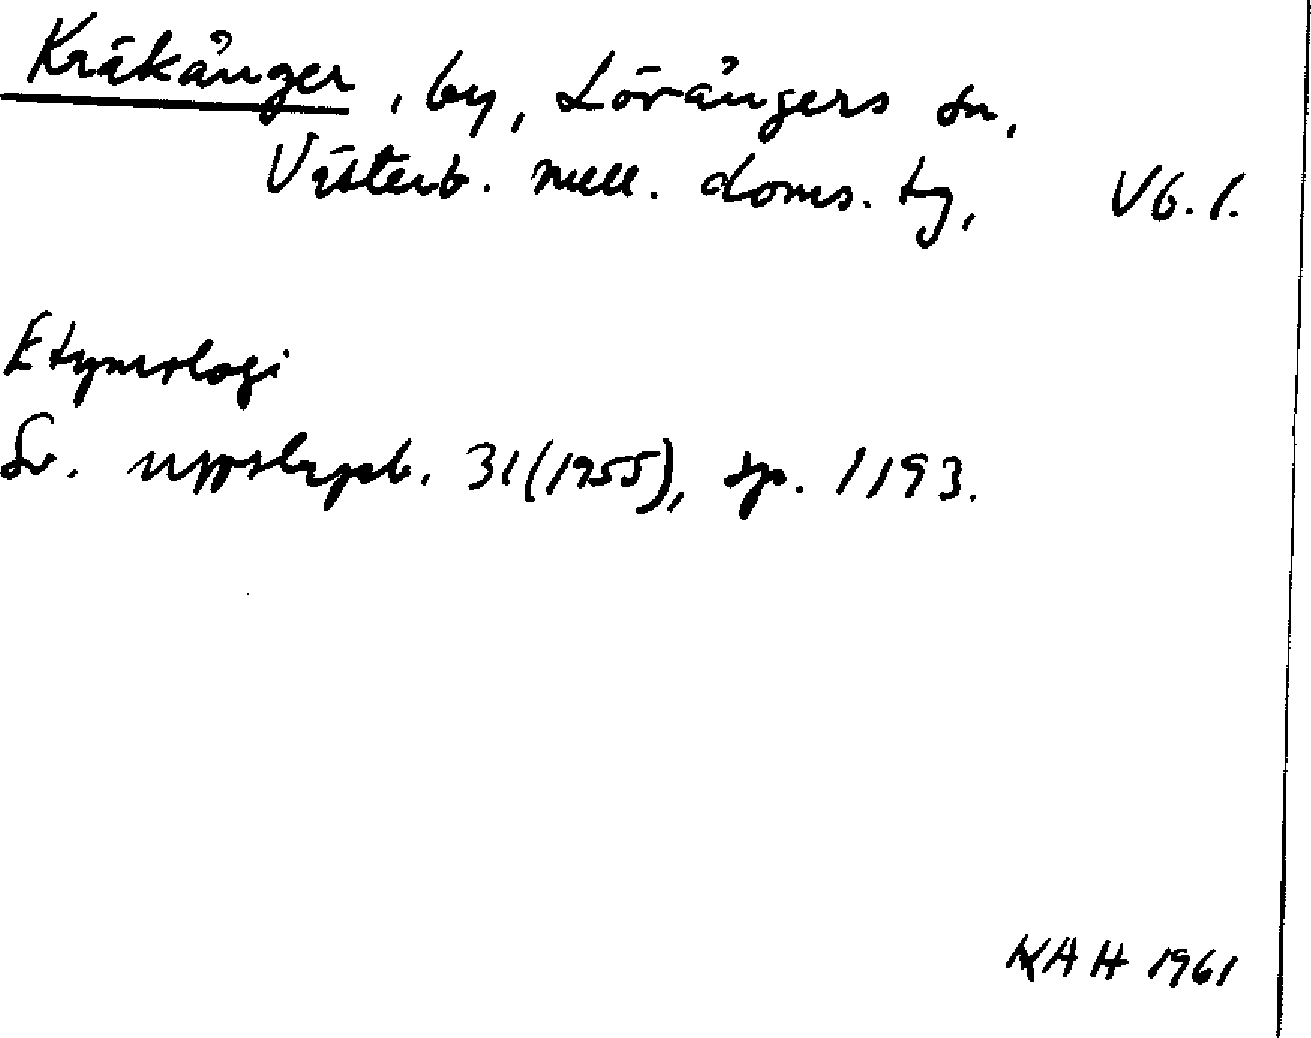 Kräkånger, by, Lövångers sn,
Västerb. mell. doms. tg, Vb. l.
Etymologi
Sv. uppslagsb. 31 (1955), sp. 1193.
KAH 1961